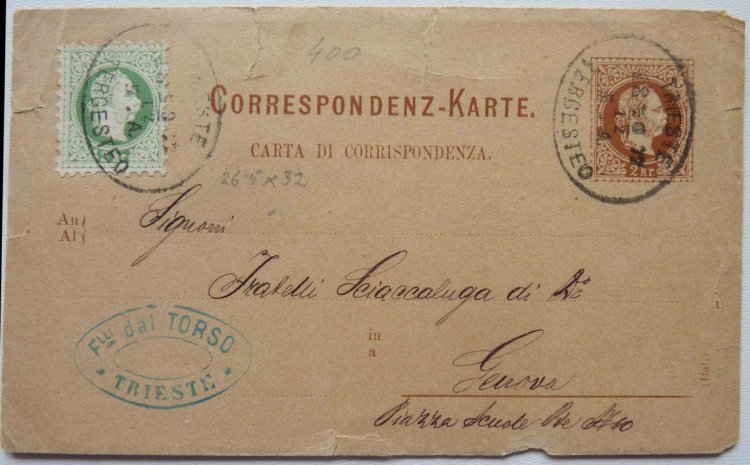 400
CORRESPONDENZ-KARTE.
CARTA DI CORRISPONDENZA.
TRIESTE
TERGESTEO
TRIESTE
TERGESTEO
2 kr.
26·5 x 32
An
Al
Signori
Fratelli Sciaccaluga di
in
a
Genova
Piazza Scuole Pie
Flli dal TORSO
* TRIESTE *
(Ital.)